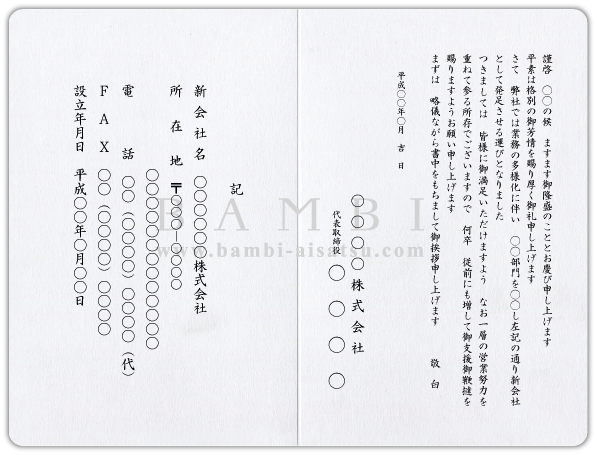 謹啓　〇〇の候　ますます御隆盛のこととお慶び申し上げます
平素は格別の御芳情を賜り厚く御礼申し上げます
さて　弊社では業務の多様化に伴い　〇〇部門を〇〇し左記の通り新会社
として発足させる運びとなりました
つきましては　皆様に御満足いただけますよう　なお一層の営業努力を
重ねて参る所存でございますので　何卒　従前にも増して御支援御鞭撻を
賜りますようお願い申し上げます
まずは　略儀ながら書中をもちまして御挨拶申し上げます
敬白
平成〇〇年〇月　吉　日
〇〇〇〇株式会社
代表取締役　〇　〇　〇　〇
記
新会社名　〇〇〇〇〇株式会社
所　在　地　〒〇〇〇―〇〇〇〇
〇〇〇〇〇〇〇〇〇〇〇〇〇
電　　　話　〇〇（〇〇〇〇）〇〇〇〇（代）
Ｆ　Ａ　Ｘ　〇〇（〇〇〇〇）〇〇〇〇
設立年月日　平成〇〇年〇月〇〇日
BAMBI
www.bambi-aisatsu.com